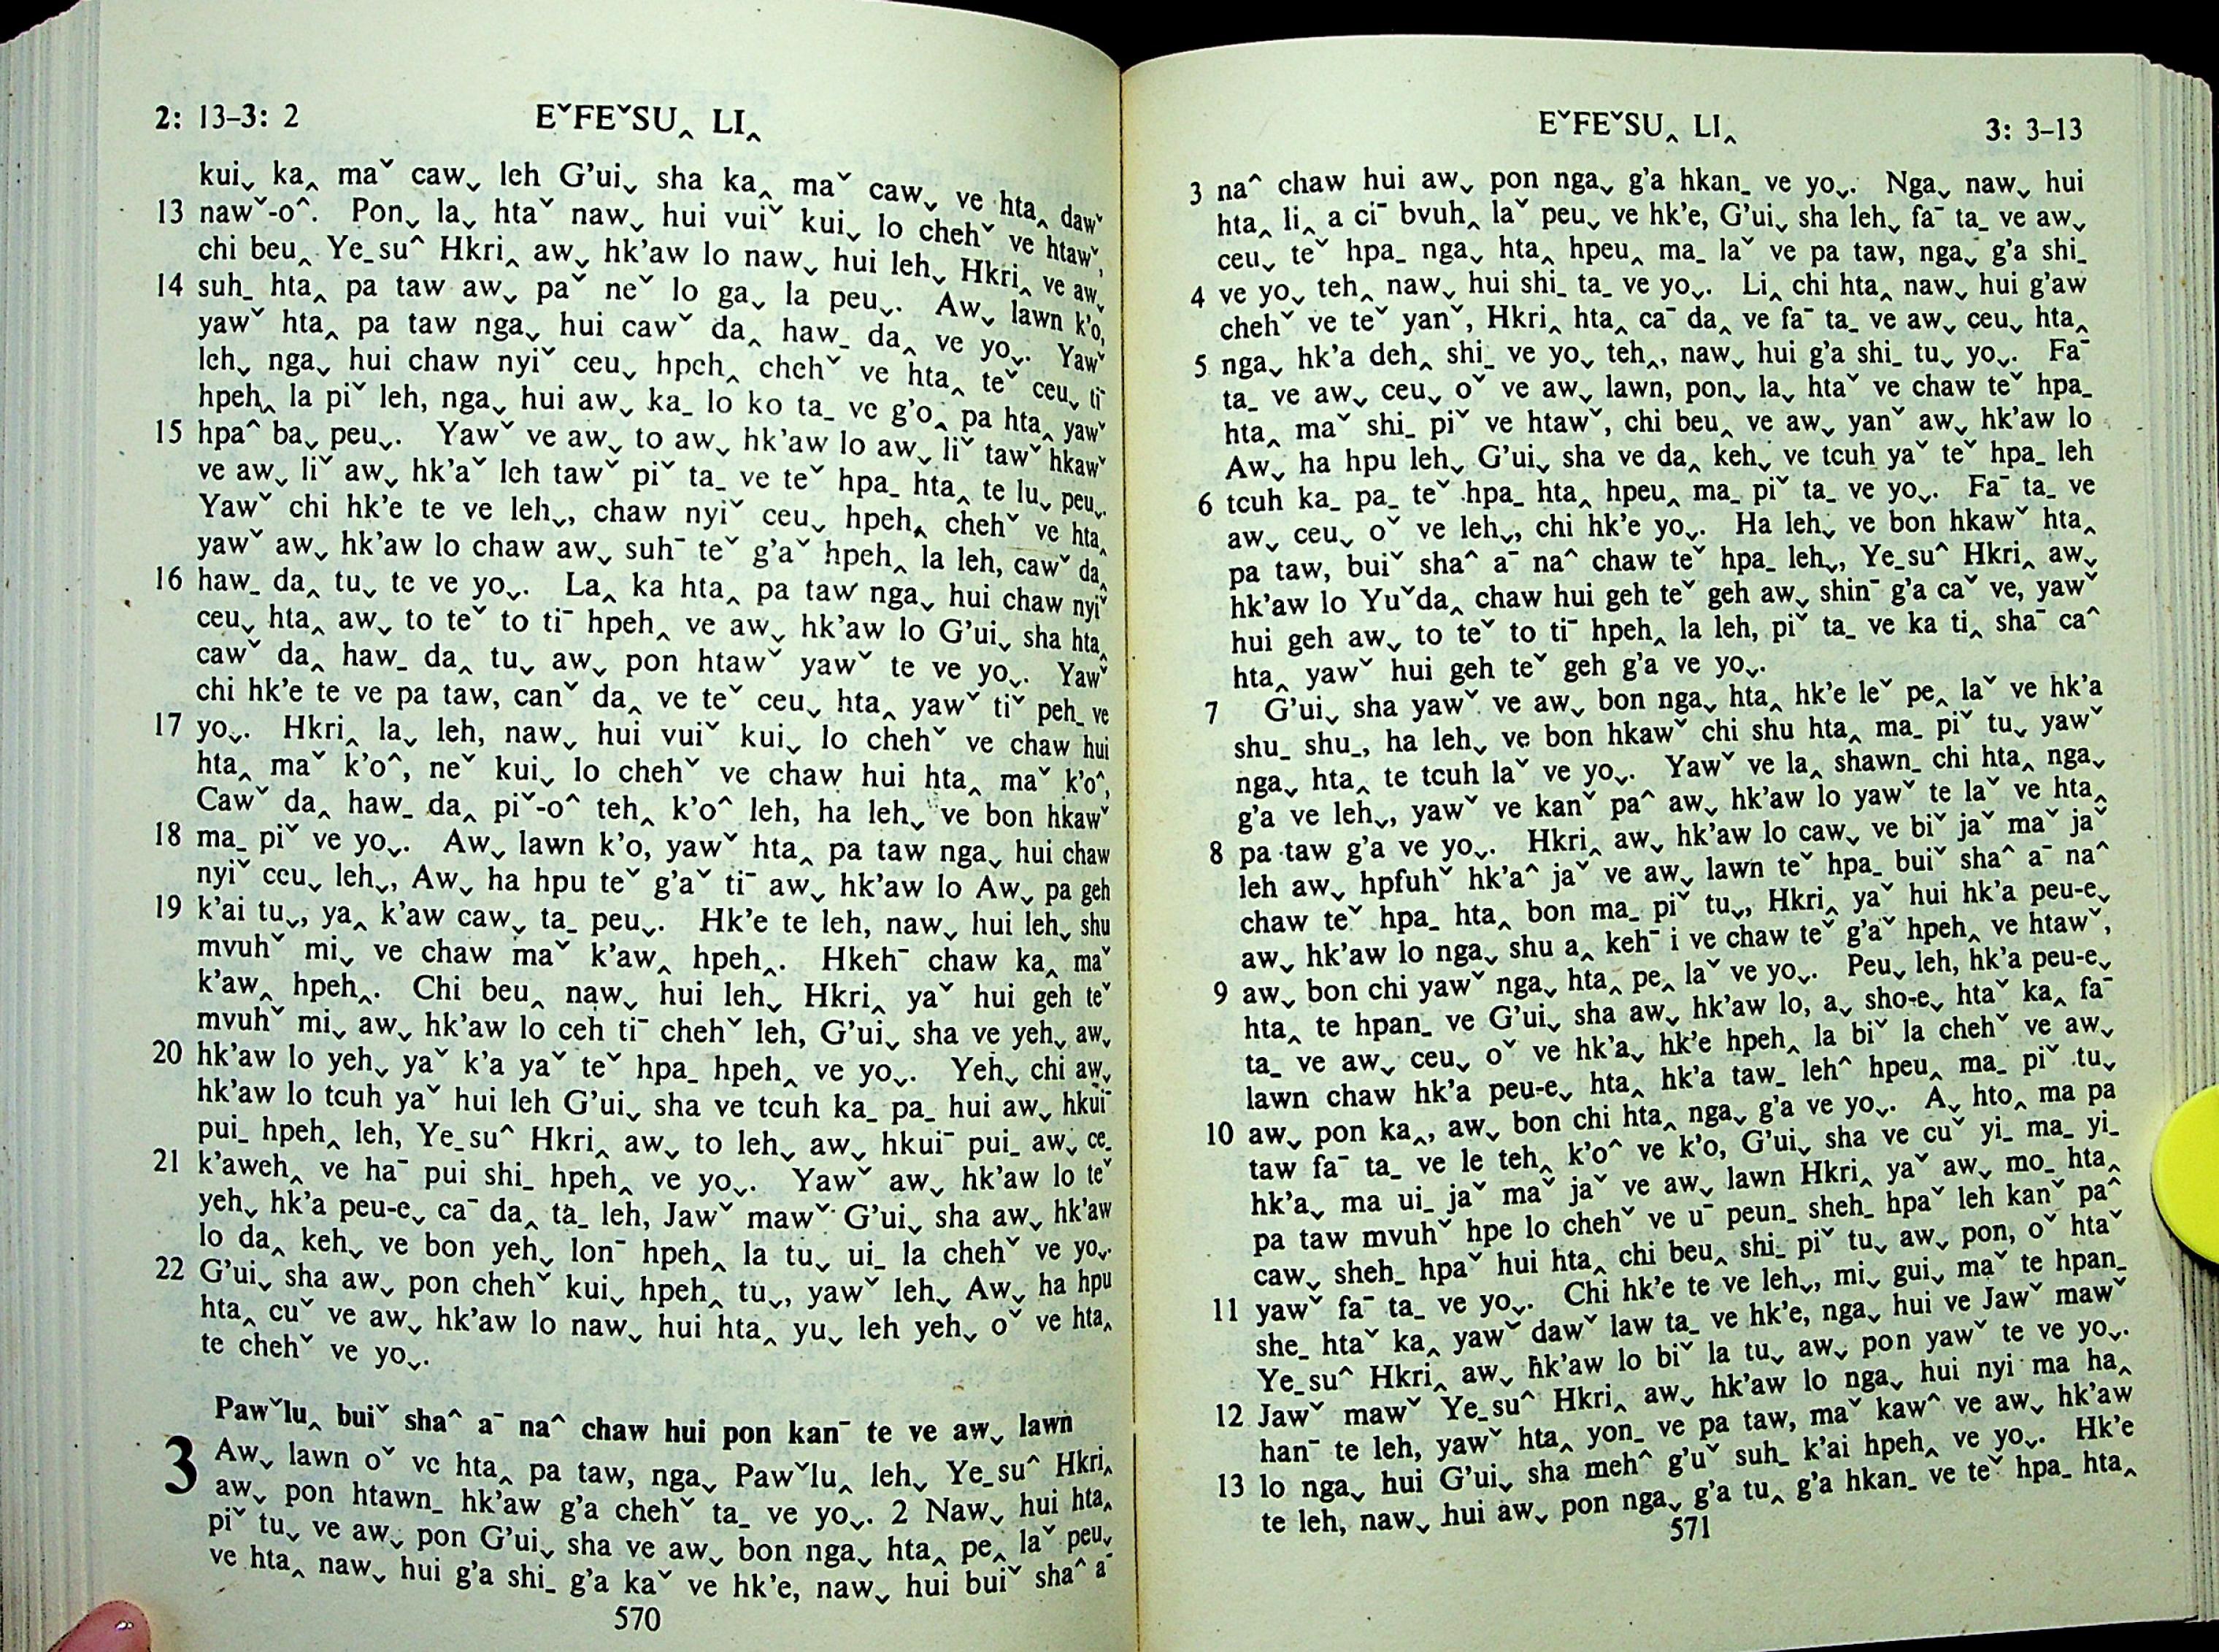 2: 13–3: 2
EˇFEˇSU‸ LI‸
kui˯ ka‸ maˇ caw˯ leh G’ui˯ sha ka‸ maˇ caw˯ ve hta‸ dawˇ
13 nawˇ-o^. Pon˯ la˯ htaˇ naw˯ hui vuiˇ kui˯ lo chehˇ ve htawˇ,
chi beu‸ Ye_su^ Hkri‸ aw˯ hk’aw lo naw˯ hui leh˯ Hkri‸ ve aw˯
14 suh_ hta‸ pa taw aw˯ paˇ neˇ lo ga˯ la peu˯. Aw˯ lawn k’o,
yawˇ hta‸ pa taw nga˯ hui cawˇ da‸ haw_ da‸ ve yo˯. Yawˇ
leh˯ nga˯ hui chaw nyiˇ ceu˯ hpeh‸ chehˇ ve hta‸ teˇ ceu˯ tiˉ
hpeh‸ la piˇ leh, nga˯ hui aw˯ ka_ lo ko ta_ ve g’o‸ pa hta‸ yawˇ
15 hpa^ ba˯ peu˯. Yawˇ ve aw˯ to aw˯ hk’aw lo aw˯ liˇ tawˇ hkawˇ
ve aw˯ liˇ aw˯ hk’aˇ leh tawˇ piˇ ta_ ve teˇ hpa_ hta‸ te lu˯ peu˯.
Yawˇ chi hk’e te ve leh˯, chaw nyiˇ ceu˯ hpeh‸ chehˇ ve hta‸
yawˇ aw˯ hk’aw lo chaw aw˯ suhˉ teˇ g’aˇ hpeh‸ la leh, cawˇ da‸
16 haw_ da‸ tu˯ te ve yo˯. La‸ ka hta‸ pa taw nga˯ hui chaw nyiˇ
ceu˯ hta‸ aw˯ to teˇ to tiˉ hpeh‸ ve aw˯ hk’aw lo G’ui˯ sha hta‸
cawˇ da‸ haw_ da‸ tu˯ aw˯ pon htawˇ yawˇ te ve yo˯. Yawˇ
chi hk’e te ve pa taw, canˇ da‸ ve teˇ ceu˯ hta‸ yawˇ tiˇ peh_ ve
17 yo˯. Hkri‸ la˯ leh, naw˯ hui vuiˇ kui˯ lo chehˇ ve chaw hui
hta‸ maˇ k’o^, neˇ kui˯ lo chehˇ ve chaw hui hta‸ maˇ k’o^,
Cawˇ da‸ haw_ da‸ piˇ-o^ teh‸ k’o^ leh, ha leh˯ ve bon hkawˇ
18 ma_ piˇ ve yo˯. Aw˯ lawn k’o, yawˇ hta‸ pa taw nga˯ hui chaw
nyiˇ ceu˯ leh˯, Aw˯ ha hpu teˇ g’aˇ tiˉ aw˯ hk’aw lo Aw˯ pa geh
19 k’ai tu˯, ya‸ k’aw caw˯ ta_ peu˯. Hk’e te leh, naw˯ hui leh˯ shu
mvuhˇ mi˯ ve chaw maˇ k’aw‸ hpeh‸. Hkehˉ chaw ka‸ maˇ
k’aw‸ hpeh‸. Chi beu‸ naw˯ hui leh˯ Hkri‸ yaˇ hui geh teˇ
mvuhˇ mi˯ aw˯ hk’aw lo ceh tiˉ chehˇ leh, G’ui˯ sha ve yeh˯ aw˯
20 hk’aw lo yeh˯ yaˇ k’a yaˇ teˇ hpa_ hpeh‸ ve yo˯. Yeh˯ chi aw˯
hk’aw lo tcuh yaˇ hui leh G’ui˯ sha ve tcuh ka_ pa_ hui aw˯ hkuiˉ
pui_ hpeh‸ leh, Ye_su^ Hkri‸ aw˯ to leh˯ aw˯ hkuiˉ pui_ aw˯ ce_
21 k’aweh‸ ve haˉ pui shi_ hpeh‸ ve yo˯. Yawˇ aw˯ hk’aw lo teˇ
yeh˯ hk’a peu-e˯ caˉ da‸ ta_ leh, Jawˇ mawˇ G’ui˯ sha aw˯ hk’aw
lo da‸ keh˯ ve bon yeh˯ lonˉ hpeh‸ la tu˯ ui_ la chehˇ ve yo˯.
22 G’ui˯ sha aw˯ pon chehˇ kui˯ hpeh‸ tu˯, yawˇ leh˯ Aw˯ ha hpu
hta‸ cuˇ ve aw˯ hk’aw lo naw˯ hui hta‸ yu˯ leh yeh˯ oˇ ve hta‸
te chehˇ ve yo˯.
Pawˇlu‸ buiˇ sha^ aˉ na^ chaw hui pon kanˉ te ve aw˯ lawn
3 Aw˯ lawn oˇ ve hta‸ pa taw, nga˯ Pawˇlu‸ leh˯ Ye_su^ Hkri‸
aw˯ pon htawn_ hk’aw g’a chehˇ ta_ ve yo˯. 2 Naw˯ hui hta‸
piˇ tu˯ ve aw˯ pon G’ui˯ sha ve aw˯ bon nga˯ hta‸ pe‸ laˇ peu˯
ve hta‸ naw˯ hui g’a shi_ g’a kaˇ ve hk’e, naw˯ hui buiˇ sha^ aˉ
570
EˇFEˇSU‸ LI‸
3: 3–13
3 na^ chaw hui aw˯ pon nga˯ g’a hkan_ ve yo˯. Nga˯ naw˯ hui
hta‸ li‸ a ciˉ bvuh‸ laˇ peu˯ ve hk’e, G’ui˯ sha leh˯ faˉ ta_ ve aw˯
ceu˯ teˇ hpa_ nga˯ hta‸ hpeu‸ ma_ laˇ ve pa taw, nga˯ g’a shi_
4 ve yo˯ teh‸ naw˯ hui shi_ ta_ ve yo˯. Li‸ chi hta‸ naw˯ hui g’aw
chehˇ ve teˇ yanˇ, Hkri‸ hta‸ caˉ da‸ ve faˉ ta_ ve aw˯ ceu˯ hta‸
5 nga˯ hk’a deh‸ shi_ ve yo˯ teh‸, naw˯ hui g’a shi_ tu˯ yo˯. Faˉ
ta_ ve aw˯ ceu˯ oˇ ve aw˯ lawn, pon˯ la˯ htaˇ ve chaw teˇ hpa_
hta‸ maˇ shi_ piˇ ve htawˇ, chi beu‸ ve aw˯ yanˇ aw˯ hk’aw lo
Aw˯ ha hpu leh˯ G’ui˯ sha ve da‸ keh˯ ve tcuh yaˇ teˇ hpa_ leh
6 tcuh ka_ pa_ teˇ hpa_ hta‸ hpeu‸ ma_ piˇ ta_ ve yo˯. Faˉ ta_ ve
aw˯ ceu˯ oˇ ve leh˯, chi hk’e yo˯. Ha leh˯ ve bon hkawˇ hta‸
pa taw, buiˇ sha^ aˉ na^ chaw teˇ hpa_ leh˯, Ye_su^ Hkri‸ aw˯
hk’aw lo Yuˇda‸ chaw hui geh teˇ geh aw˯ shinˉ g’a caˇ ve, yawˇ
hui geh aw˯ to teˇ to tiˉ hpeh‸ la leh, piˇ ta_ ve ka ti‸ shaˉ ca^
hta‸ yawˇ hui geh teˇ geh g’a ve yo˯.
7 G’ui˯ sha yawˇ ve aw˯ bon nga˯ hta‸ hk’e leˇ pe‸ laˇ ve hk’a
shu_ shu_, ha leh˯ ve bon hkawˇ chi shu hta‸ ma_ piˇ tu˯ yawˇ
nga˯ hta‸ te tcuh laˇ ve yo˯. Yawˇ ve la‸ shawn_ chi hta‸ nga˯
g’a ve leh˯, yawˇ ve kanˇ pa^ aw˯ hk’aw lo yawˇ te laˇ ve hta‸
8 pa taw g’a ve yo˯. Hkri‸ aw˯ hk’aw lo caw˯ ve biˇ jaˇ maˇ jaˇ
leh aw˯ hpfuhˇ hk’a^ jaˇ ve aw˯ lawn teˇ hpa_ buiˇ sha^ aˉ na^
chaw teˇ hpa_ hta‸ bon ma_ piˇ tu˯, Hkri‸ yaˇ hui hk’a peu-e˯
aw˯ hk’aw lo nga˯ shu a‸ kehˉ i ve chaw teˇ g’aˇ hpeh‸ ve htawˇ,
9 aw˯ bon chi yawˇ nga˯ hta‸ pe‸ laˇ ve yo˯. Peu˯ leh, hk’a peu-e˯
hta‸ te hpan_ ve G’ui˯ sha aw˯ hk’aw lo, a˯ sho-e˯ htaˇ ka‸ faˉ
ta_ ve aw˯ ceu˯ oˇ ve hk’a˯ hk’e hpeh‸ la biˇ la chehˇ ve aw˯
lawn chaw hk’a peu-e˯ hta‸ hk’a taw_ leh^ hpeu‸ ma_ piˇ tu˯
10 aw˯ pon ka‸, aw˯ bon chi hta‸ nga˯ g’a ve yo˯. A˯ hto‸ ma pa
taw faˉ ta_ ve le teh‸ k’o^ ve k’o, G’ui˯ sha ve cuˇ yi_ ma_ yi_
hk’a˯ ma ui_ jaˇ maˇ jaˇ ve aw˯ lawn Hkri‸ yaˇ aw˯ mo_ hta‸
pa taw mvuhˇ hpe lo chehˇ ve uˉ peun_ sheh_ hpaˇ leh kanˇ pa^
caw˯ sheh_ hpaˇ hui hta‸ chi beu‸ shi_ piˇ tu˯ aw˯ pon, oˇ htaˇ
11 yawˇ faˉ ta_ ve yo˯. Chi hk’e te ve leh˯, mi˯ gui˯ maˇ te hpan_
she_ htaˇ ka‸ yawˇ dawˇ law ta_ ve hk’e, nga˯ hui ve Jawˇ mawˇ
Ye_su^ Hkri‸ aw˯ hk’aw lo biˇ la tu˯ aw˯ pon yawˇ te ve yo˯.
12 Jawˇ mawˇ Ye_su^ Hkri‸ aw˯ hk’aw lo nga˯ hui nyi ma ha‸
hanˉ te leh, yawˇ hta‸ yon_ ve pa taw, maˇ kaw^ ve aw˯ hk’aw
13 lo nga˯ hui G’ui˯ sha meh^ g’uˇ suh_ k’ai hpeh‸ ve yo˯. Hk’e
te leh, naw˯ hui aw˯ pon nga˯ g’a tu‸ g’a hkan_ ve teˇ hpa_ hta‸
571